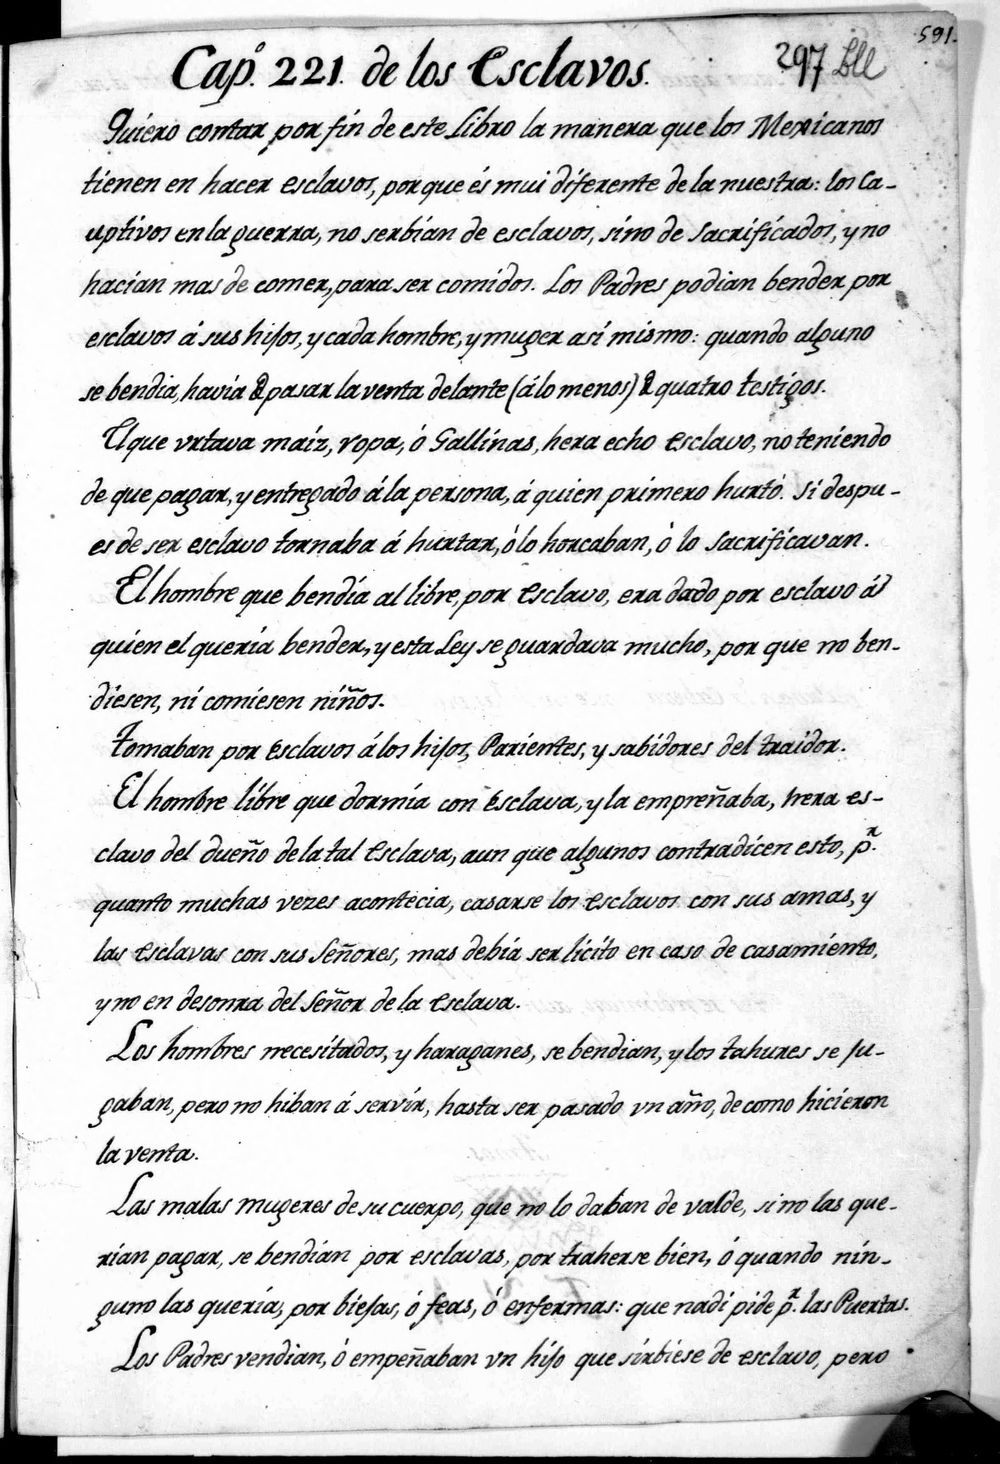 591.
297 
Capº. 221. de los Esclavos.
Quiero contar por fin de este Libro la manera que los Mexicanos
tienen en hacer esclavos, por que és mui diferente de la nuestra: los Ca-
uptivos en la guerra, no serbian de esclavos, sino de Sacrificados, y no
hacian mas de comer, para ser comidos. Los Padres podian bender por
esclavos á sus hijos, y cada hombre, y muger asi mismo: quando alguno
se bendia, havia d pasar la venta delante (á lo menos) d quatro testigos.
El que vrtava maiz, ropa, ó Gallinas, hera echo esclavo, no teniendo
de que pagar, y entregado á la persona, á quien primero hurtó. Si despu-
es de ser esclavo tornaba á hurtar, ó lo horcaban, ó lo Sacrificavan.
El hombre que bendía al libre, por esclavo, era dado por esclavo á
quien el quería bender, y esta Ley se guardava mucho, por que no ben-
diesen, ni comiesen niños.
Tomaban por esclavos á los hijos, Parientes, y sabidores del traidor.
El hombre libre que dormía con Esclava, y la empreñaba, hera es-
clavo del dueño de la tal Esclava, aun que algunos contradicen esto, pr.
quanto muchas vezes acontecia, casarse los esclavos con sus amas, y
las esclavas con sus Señores, mas debia ser licito en caso de casamiento,
y no en desonra del Señor de la esclava.
Los hombres necesitados, y haraganes, se bendian, y los tahures se ju-
gaban, pero no hiban á servir, hasta ser pasado vn año, de como hicieron
la venta.
Las malas mugeres de su cuerpo, que no lo daban de valde, si no las que-
rían pagar, se bendian por esclavas, por traherse bien, ó quando nin-
guno las quería, por biejas, ó feas, ó enfermas: que nadi pide pr. las Puertas.
Los Padres vendian, ó empeñaban vn hijo que sirbiese de esclavo, pero